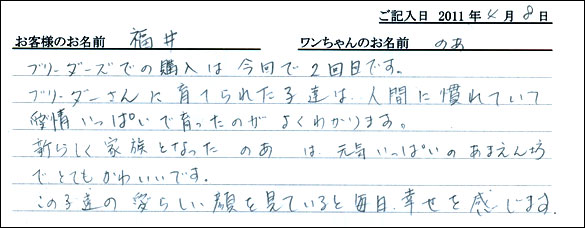 ご記入日 2011年4月8日
お客様のお名前 福井 ワンちゃんのお名前 のあ
ブリーダーズでの購入は今回で2回目です。
ブリーダーさんに育てられた子達は、人間に慣れていて
愛情いっぱいで育ったのがよくわかります。
新らしく家族となったのあは元気いっぱいのあまえん坊
でとてもかわいいです。
この子達の愛らしい顔を見ていると毎日、幸せを感じます。